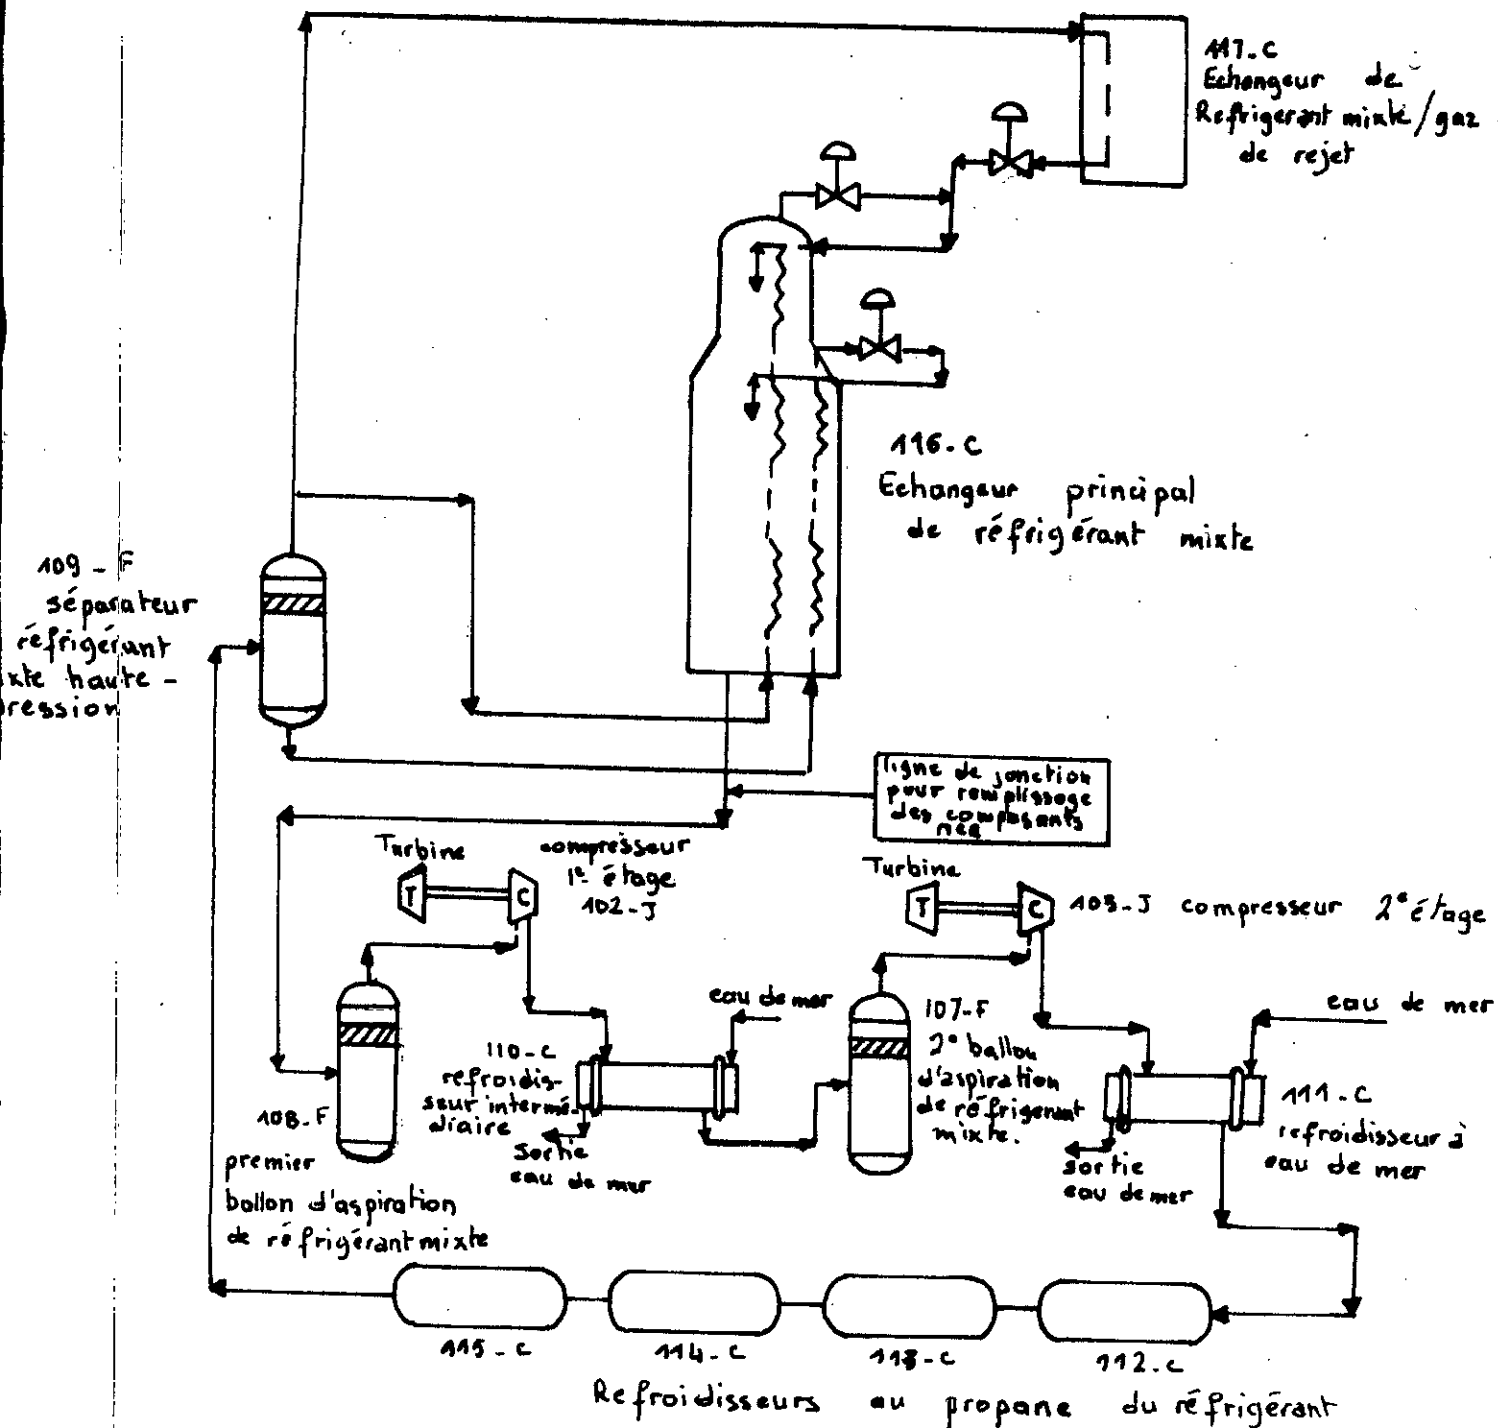 117-C
Echangeur de
Refrigerant mixte/gaz
de rejet
116-C
Echangeur principal
de réfrigérant mixte
109-F
séparateur
réfrigérant
xte haute-
ression
ligne de jonction
pour remplissage
des composants
MCR
Turbine
T
C
compresseur
1e étage
102-J
Turbine
T
C
103-J compresseur 2e étage
eau de mer
110-C
refroidis-
seur intermé-
diaire
sortie
eau de mer
108-F
premier
ballon d'aspiration
de réfrigérant mixte
107-F
2° ballon
d'aspiration
de réfrigerant
mixte.
eau de mer
111-C
refroidisseur à
eau de mer
sortie
eau de mer
115-C
114-C
113-C
112-C
Refroidisseurs au propane du réfrigérant